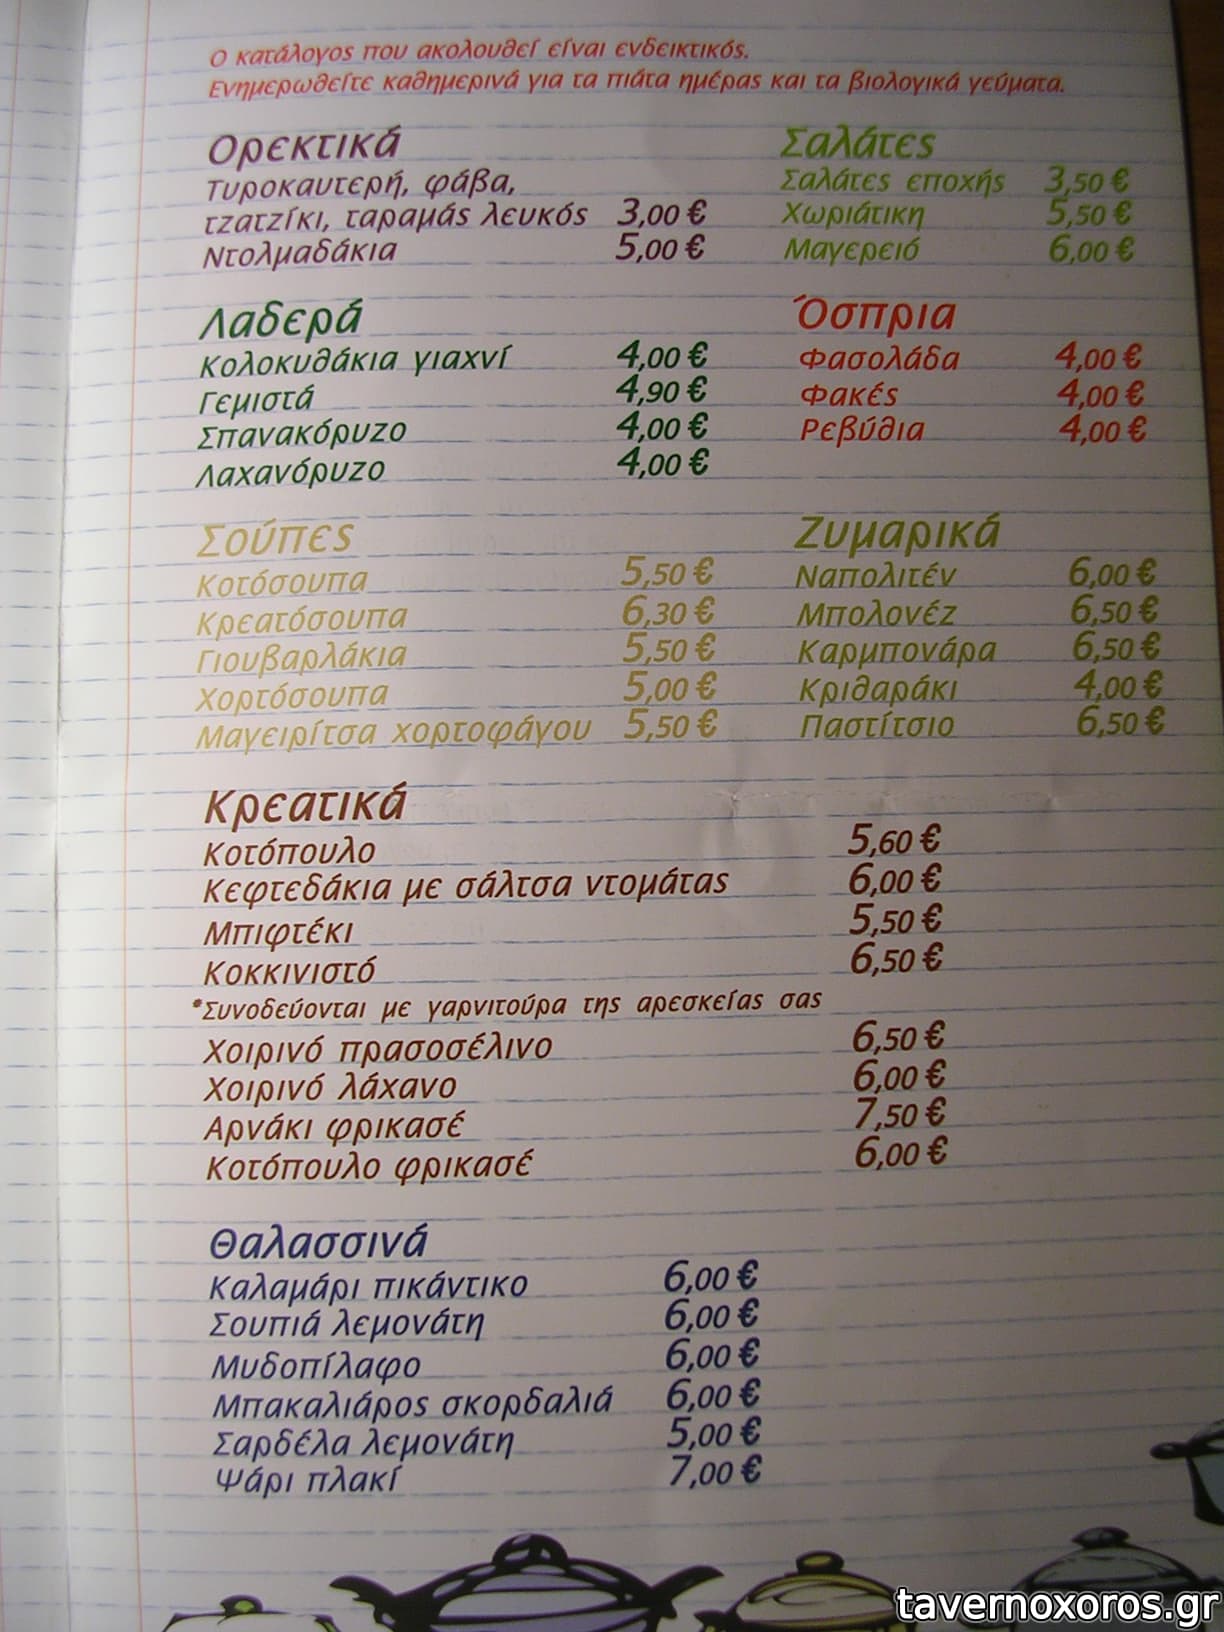 Ο κατάλογος που ακολουθεί είναι ενδεικτικός.
Ενημερωθείτε καθημερινά για τα πιάτα ημέρας και τα βιολογικά γεύματα.
Ορεκτικά
Τυροκαυτερή, φάβα,
τζατζίκι, ταραμάς λευκός 3,00 €
Ντολμαδάκια 5,00 €
Σαλάτες
Σαλάτες εποχής 3,50 €
Χωριάτικη 5,50 €
Μαγερειό 6,00 €
Λαδερά
Κολοκυθάκια γιαχνί 4,00 €
Γεμιστά 4,90 €
Σπανακόρυζο 4,00 €
Λαχανόρυζο 4,00 €
Όσπρια
Φασολάδα 4,00 €
Φακές 4,00 €
Ρεβύθια 4,00 €
Σούπες
Κοτόσουπα 5,50 €
Κρεατόσουπα 6,30 €
Γιουβαρλάκια 5,50 €
Χορτόσουπα 5,00 €
Μαγειρίτσα χορτοφάγου 5,50 €
Ζυμαρικά
Ναπολιτέν 6,00 €
Μπολονέζ 6,50 €
Καρμπονάρα 6,50 €
Κριθαράκι 4,00 €
Παστίτσιο 6,50 €
Κρεατικά
Κοτόπουλο 5,60 €
Κεφτεδάκια με σάλτσα ντομάτας 6,00 €
Μπιφτέκι 5,50 €
Κοκκινιστό 6,50 €
*Συνοδεύονται με γαρνιτούρα της αρεσκείας σας
Χοιρινό πρασοσέλινο 6,50 €
Χοιρινό λάχανο 6,00 €
Αρνάκι φρικασέ 7,50 €
Κοτόπουλο φρικασέ 6,00 €
Θαλασσινά
Καλαμάρι πικάντικο 6,00 €
Σουπιά λεμονάτη 6,00 €
Μυδοπίλαφο 6,00 €
Μπακαλιάρος σκορδαλιά 6,00 €
Σαρδέλα λεμονάτη 5,00 €
Ψάρι πλακί 7,00 €
tavernoxoros.gr